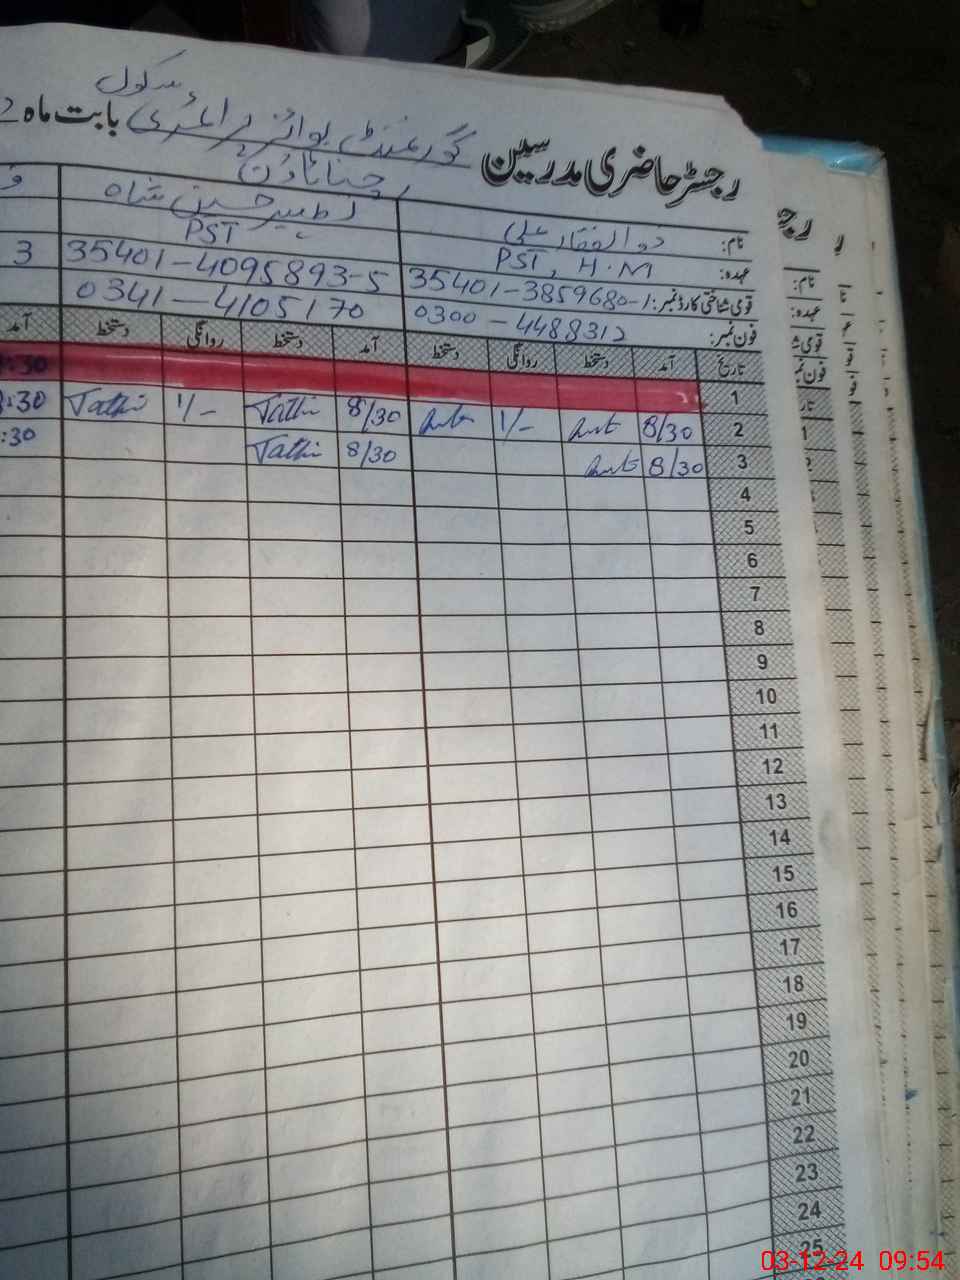 سکول
رجسٹر حاضری مدرسین گورنمنٹ بوائز پرائمری بابت ماہ 2
رچنا ٹاؤن
نام: ذوالفقار علی حسین شاہ
عہدہ: PST, H.M PST
قومی شناختی کارڈ نمبر: 35401-3859680-1 35401-4095893-5 3
فون نمبر: 0300-4488312 0341-4105170
تاریخ آمد دستخط روانگی دستخط آمد دستخط روانگی دستخط آمد
1 :30
2 8/30 1/- 8/30 Tathi 1/- Tathi 8:30
3 8/30 8/30 Tathi :30
4
5
6
7
8
9
10
11
12
13
14
15
16
17
18
19
20
21
22
23
24
25
رجـ
نام:
عہدہ:
قومی شـ
فون نمبر
03-12-24 09:54